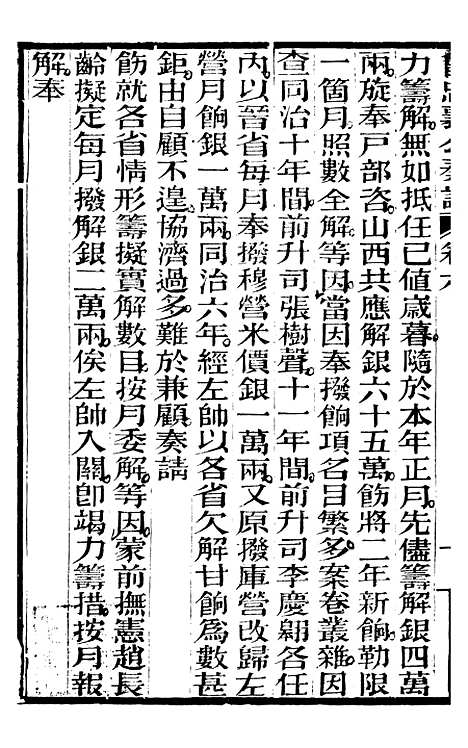 力籌解無如抵任已値歲暮隨於本年正月先儘籌解銀四萬
兩旋奉戸部咨山西共應解銀六十五萬飭將二年新餉勒限
一箇月照數全解等因當因奉撥餉項名目繁多案卷叢雜因
查同治十年間前升司張樹聲十一年間前升司李慶翱各任
內以晉省每月奉撥穆營米價銀一萬兩又原撥庫營改歸左
營月餉銀一萬兩同治六年經左帥以各省欠解甘餉爲數甚
鉅由自顧不遑協濟過多難於兼顧奏請
飭就各省情形籌擬實解數目按月委解等因蒙前撫憲趙長
齡擬定每月撥解銀二萬兩俟左帥入關卽竭力籌措按月報
解奉